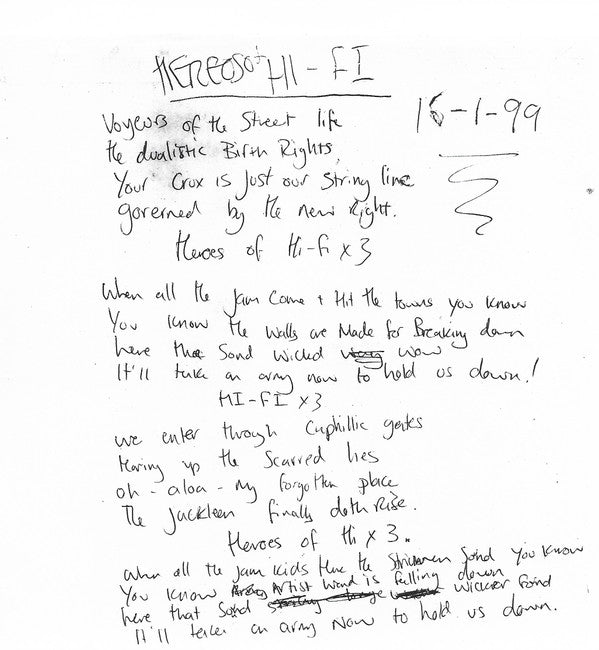 HEREOSOF HI-FI
16-1-99
Voyeurs of the Street life
the dualistic Birth Rights,
Your Crux is Just our String line
governed by the new Right.
Heroes of Hi-fi x3
When all the Jam Come + Hit the towns you know
You know the walls are Made for Breaking down
here that Sond wicked wow
It'll take an army now to hold us down!
HI-FI x3
we enter through Cuphillic gates
tearing up the Scarred lies
oh - aloa - my forgotten place
The Jackleen finally doth Rise.
Heroes of Hi x3.
when all the Jam kids Have the Sond you know
You know Artist wand is falling down
here that Sond wicker
It'll take an army Now to hold us down.